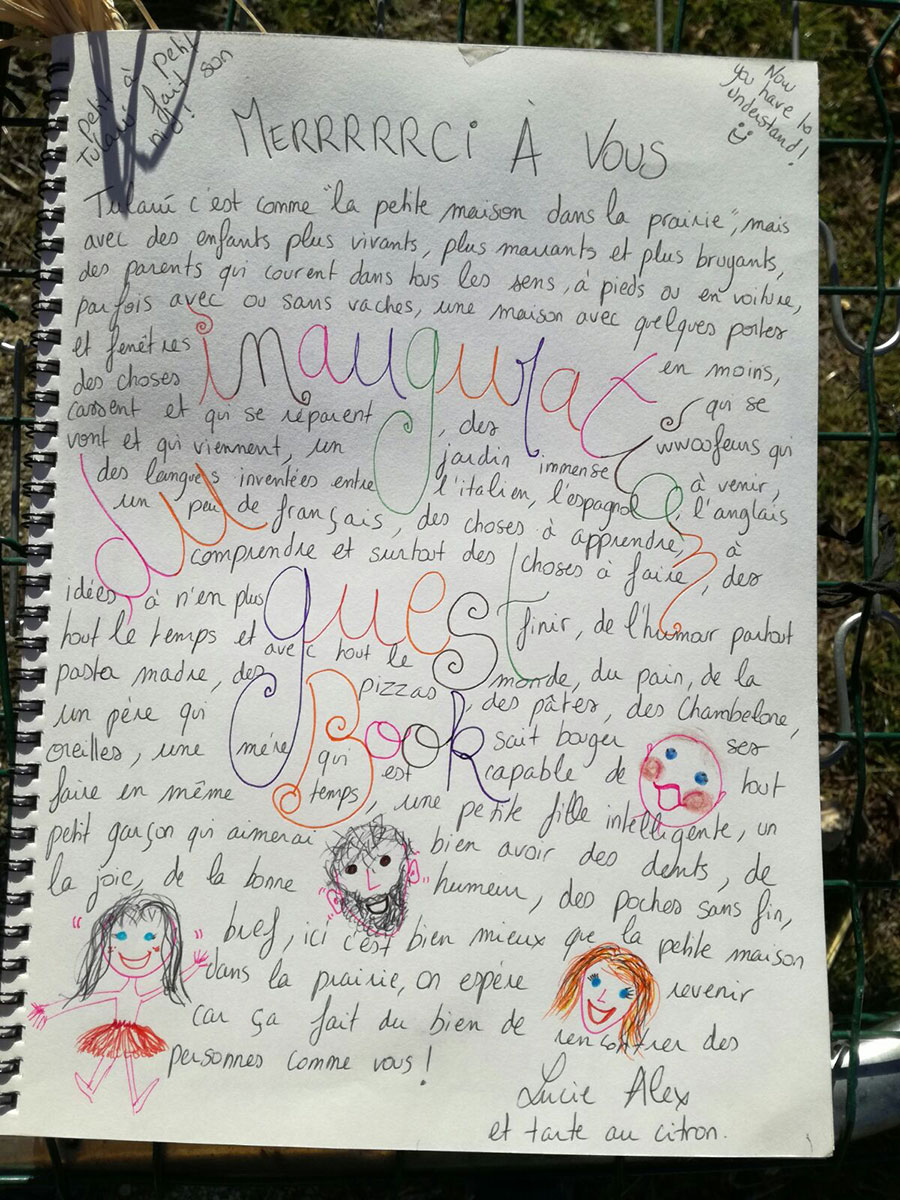 Petit à Petit
Tulami fait son
nid !
Now
you have to
understand !
MERRRRRCi À VOUS
Tulami c'est comme "la petite maison dans la prairie", mais
avec des enfants plus vivants, plus marrants et plus bruyants,
des parents qui courent dans tous les sens, à pieds ou en voiture,
parfois avec ou sans vaches, une maison avec quelques portes
et fenêtres en moins,
des choses qui se
cassent et qui se réparent, des wwoofeurs qui
vont et qui viennent, un jardin immense à venir,
des langues inventées entre l'italien, l'espagnol, l'anglais
un peu de français, des choses à apprendre, à
comprendre et surtout des choses à faire, des
idées à n'en plus finir, de l'humour partout
tout le temps et avec tout le monde, du pain, de la
pasta madre, des pizzas, des pâtes, des Chambelone,
un père qui sait bouger ses
oreilles, une mère qui est capable de tout
faire en même temps, une petite fille intelligente, un
petit garçon qui aimerai bien avoir des dents, de
la joie, de la bonne humeur, des poches sans fin,
bref, ici c'est bien mieux que la petite maison
dans la prairie, on espère revenir
car ça fait du bien de rencontrer des
personnes comme vous !
inauguration
du
guest
Book
Lucie Alex
et tarte au citron.